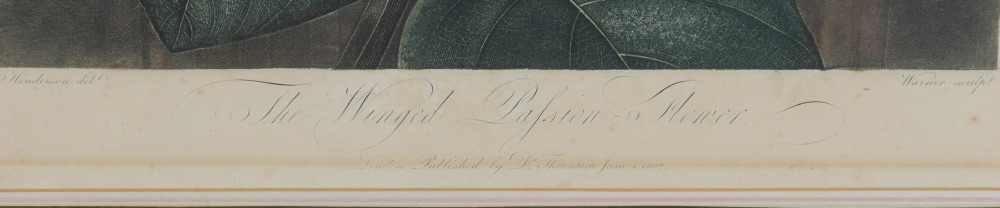 Henderson, delt. Warner, sculpt.
The Winged Paſsion-Flower.
London, Published by Dr. Thornton, June 1, 1802.